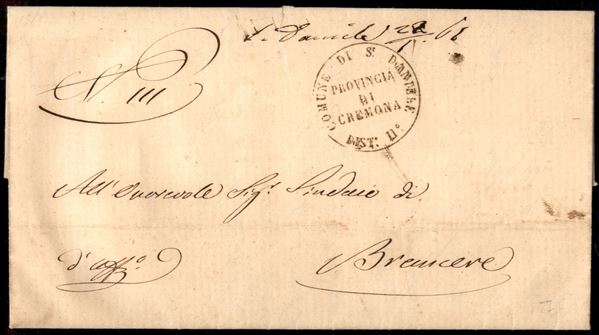 S. Daniele 28/1. 61
N. 111
COMUNE DI S. DANIELE
PROVINCIA
DI
CREMONA
DIST: II°
All'Onorevole Sig.r Sindaco di
d'uff°.
Brancere